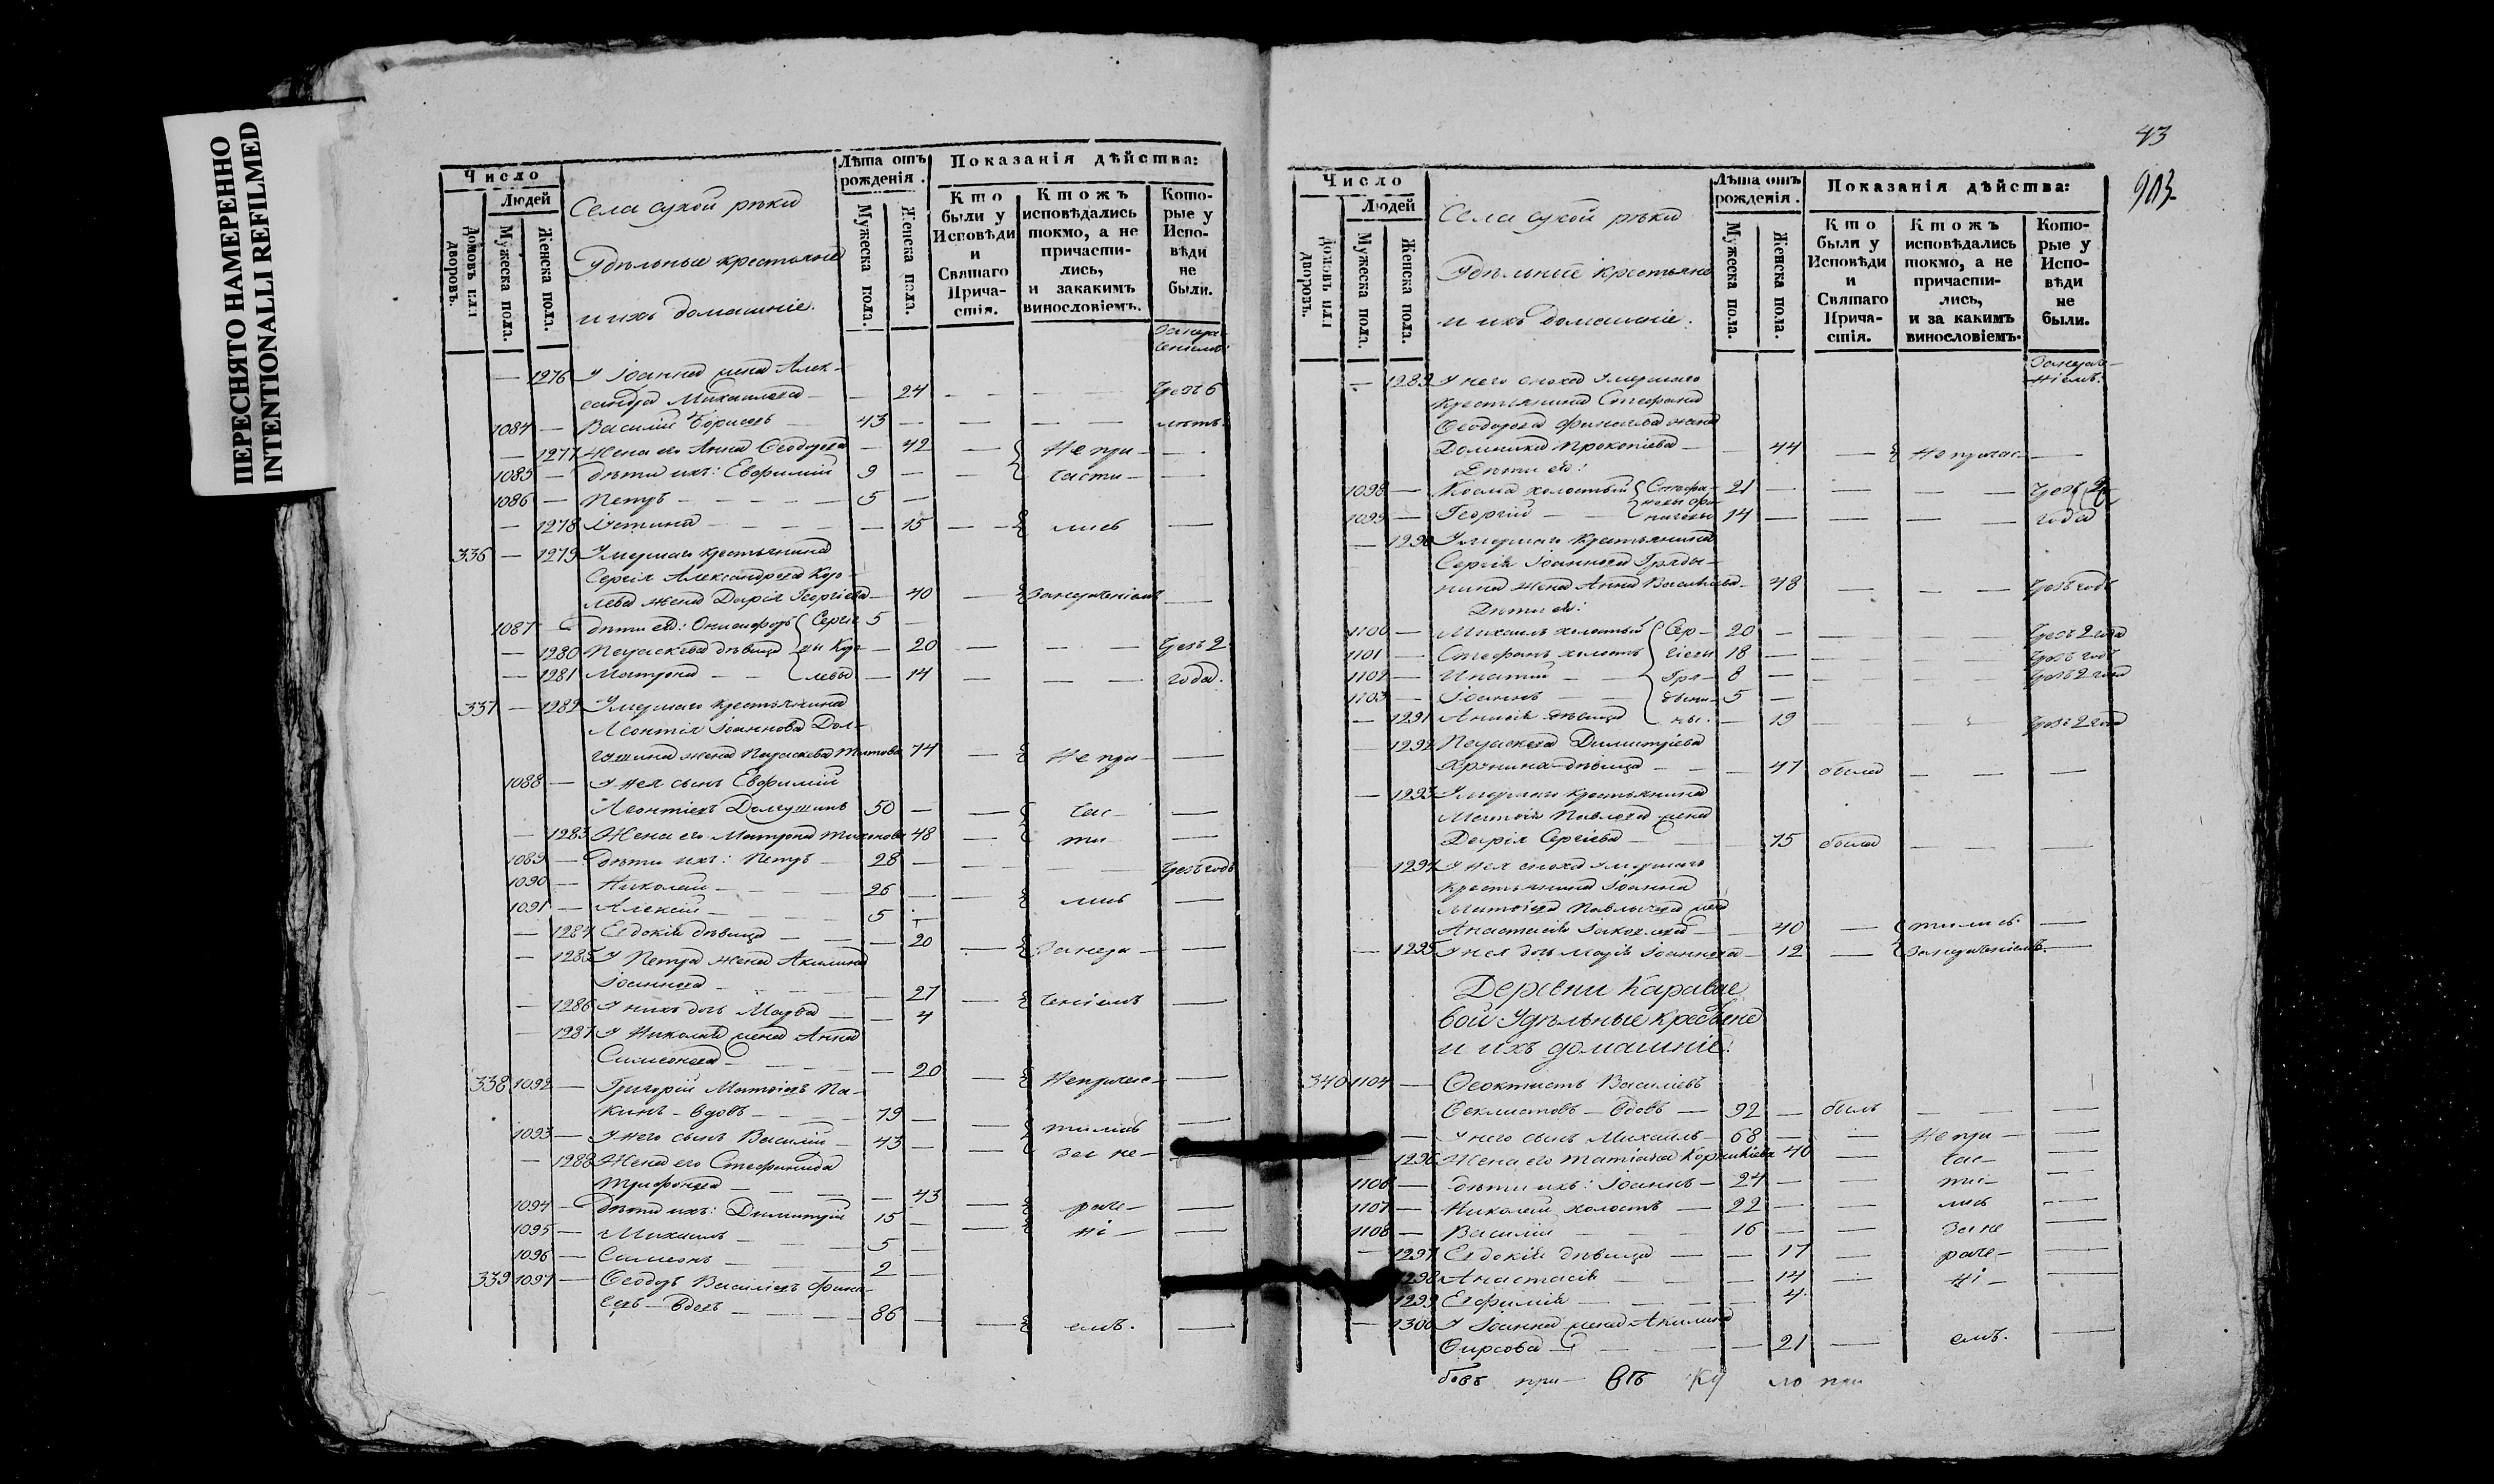 ПЕРЕСНЯТО НАМЕРЕННО
INTENTIONALLI REFILMED
Число
Людей
Домовъ или дворовъ.
Мужеска пола.
Женска пола.
Села сухой рѣки
Удѣльные крестьяне
и ихъ домашніе.
Лѣта отъ рожденія.
Мужеска пола.
Женска пола.
Показанія дѣйства:
Кто были у Исповѣди и Святаго Причастія.
Ктожъ исповѣдались токмо, а не причастились, и закакимъ винословіемъ.
Которые у Исповѣди не были.
— 1276 У Іоанна жена Алек-
сандра Михаилова — — 24 — — — Чрезъ 6
1084 — Василій Борисовъ 43 — — — — лѣтъ.
— 1277 Жена его Анна Ѳеодорова — 42 — Не при- —
1085 — дѣти ихъ: Евфимій 9 — — части- —
1086 — Петръ — — 5 —
— 1278 Устина — — — 15 — лись —
336 — 1279 Умершаго крестьянина
Сергія Александрова Коро-
лева жена Дарія Георгіева — 40 — Занераченіемъ —
1087 — дѣти ея: Онисифоръ Сергіе 5 —
— 1280 Параскева дѣвица — 20 — — — Чрезъ 2
— 1281 Матрона — — левы — 14 — — — года.
337 — 1282 Умершаго крестьянина
Леонтія Іоаннова Дол-
гушина жена Параскева Титова 74 — Не при- —
1088 — У нея сынъ Евфимій
Леонтіевъ Долгушинъ 50 — — час- —
— 1283 Жена его Матрона 48 — ти —
1089 — дѣти ихъ: Петръ — 28 — — — Чрезъ годъ
1090 — Николай — — 26 — — лись —
1091 — Алексій — — 5 —
— 1284 Евдокія дѣвица — — 20 — Занера- —
— 1285 У Петра жена Акилина
Іоаннова — — — 27 — ченіемъ —
— 1286 У нихъ дочь Марѳа — — 4
— 1287 У Николая жена Анна
Симеонова — — 20 — Непричас- —
338 1092 — Григорій Матѳіевъ Па-
кинъ — вдовъ — 79 — — тились —
1093 — У него сынъ Василій — 43 — — за не- —
— 1288 Жена его Стефанида
Трифонова — — 43 — раче- —
1094 — Дѣти ихъ: Димитрій 15 — — ні- —
1095 — Михаилъ — — 5 —
1096 — Симеонъ — — 2 —
339 1097 — Ѳеодоръ Василіевъ
— вдовъ — — 86 — — емъ. —
43
903
Число
Людей
Домовъ или дворовъ.
Мужеска пола.
Женска пола.
Села сухой рѣки
Удѣльные крестьяне
и ихъ домашніе:
Лѣта отъ рожденія.
Мужеска пола.
Женска пола.
Показанія дѣйства:
Кто были у Исповѣди и Святаго Причастія.
Ктожъ исповѣдались токмо, а не причастились, и за какимъ винословіемъ.
Которые у Исповѣди не были.
— 1289 У него сноха умершаго
крестьянина Стефана
Ѳеодорова жена
Домника Прокопіева — — 44 — Не причас- —
Дѣти ея:
1098 — Косма холостый 21 — — — — Чрезъ 2
1099 — Георгій — 14 — — — — года
— 1290 Умершаго крестьянина
Сергія Іоаннова Гряды-
нина жена Анна Василіева — 48 — — — Чрезъ годъ
Дѣти ея:
1100 — Михаилъ холостый Сер- 20 — — — — Чрезъ 2 года
1101 — Стефанъ холостъ гіевы 18 — — — — Чрезъ годъ
1102 — Ипатій — — Гря- 8 — — — — Чрезъ 2 года
1103 — Іоаннъ — — дыни- 5 —
— 1291 Анисія дѣвица ны. — 19 — — — Чрезъ 2 года
— 1292 Параскева Димитріева
дѣвица — — 47 была — — —
— 1293 Умершаго крестьянина
Матѳія Павлова жена
Дарія Сергіева — — 75 была — — —
— 1294 У нея сноха умершаго
крестьянина Іоанна
Матѳіева жена
Анастасія Іаковлева — 40 — тились —
— 1295 У нея дочь Марія Іоаннова — 12 — Занераченіемъ. —
Деревни Каравае
вой Удѣльные Крестьяне
и ихъ домашніе:
340 1104 — Ѳеоктистъ Василіевъ
Ѳеклистовъ — вдовъ — 92 — былъ — — —
— У него сынъ Михаилъ — 68 — — Не при — —
— 1296 Жена его Татіана Корниліева 40 — час- —
1106 — дѣти ихъ: Іоаннъ — 24 — — ти- —
1107 — Николай холостъ — 22 — — лись —
1108 — Василій — 16 — — За не —
— 1297 Евдокія дѣвица — — 17 — раче- —
1298 Анастасія — — 14 — ні- —
1299 Евфимія — — 4
— 1300 У Іоанна жена Акилина
Ѳирсова — — 21 — емъ. —